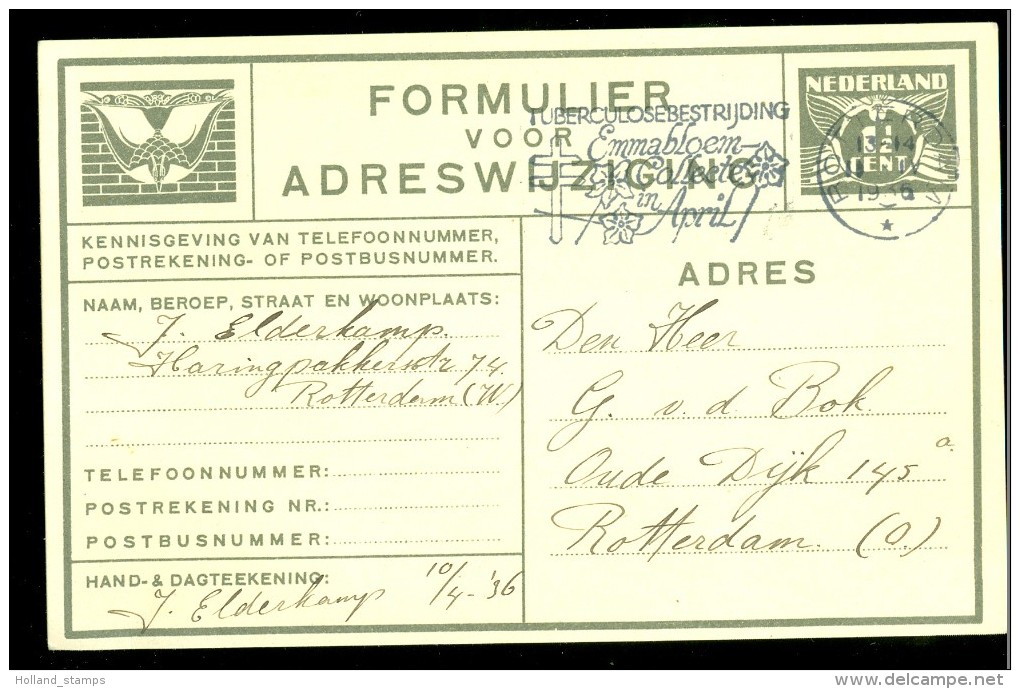 FORMULIER
VOOR
ADRESWIJZIGING
TUBERCULOSEBESTRIJDING
Emmabloem-
Collecte
in
April
NEDERLAND
1½
CENT
ROTTERDAM
13-14
1936
KENNISGEVING VAN TELEFOONNUMMER,
POSTREKENING- OF POSTBUSNUMMER.
NAAM, BEROEP, STRAAT EN WOONPLAATS:
J. Elderkamp.
Haringpakkerstr 74.
Rotterdam (W.)
TELEFOONNUMMER:
POSTREKENING NR.:
POSTBUSNUMMER:
HAND- & DAGTEEKENING:
J. Elderkamp 10/4-'36
ADRES
Den Heer
G. v. d Bok
Oude Dijk 145 a
Rotterdam (O.)
Holland_stamps
delcampe.net